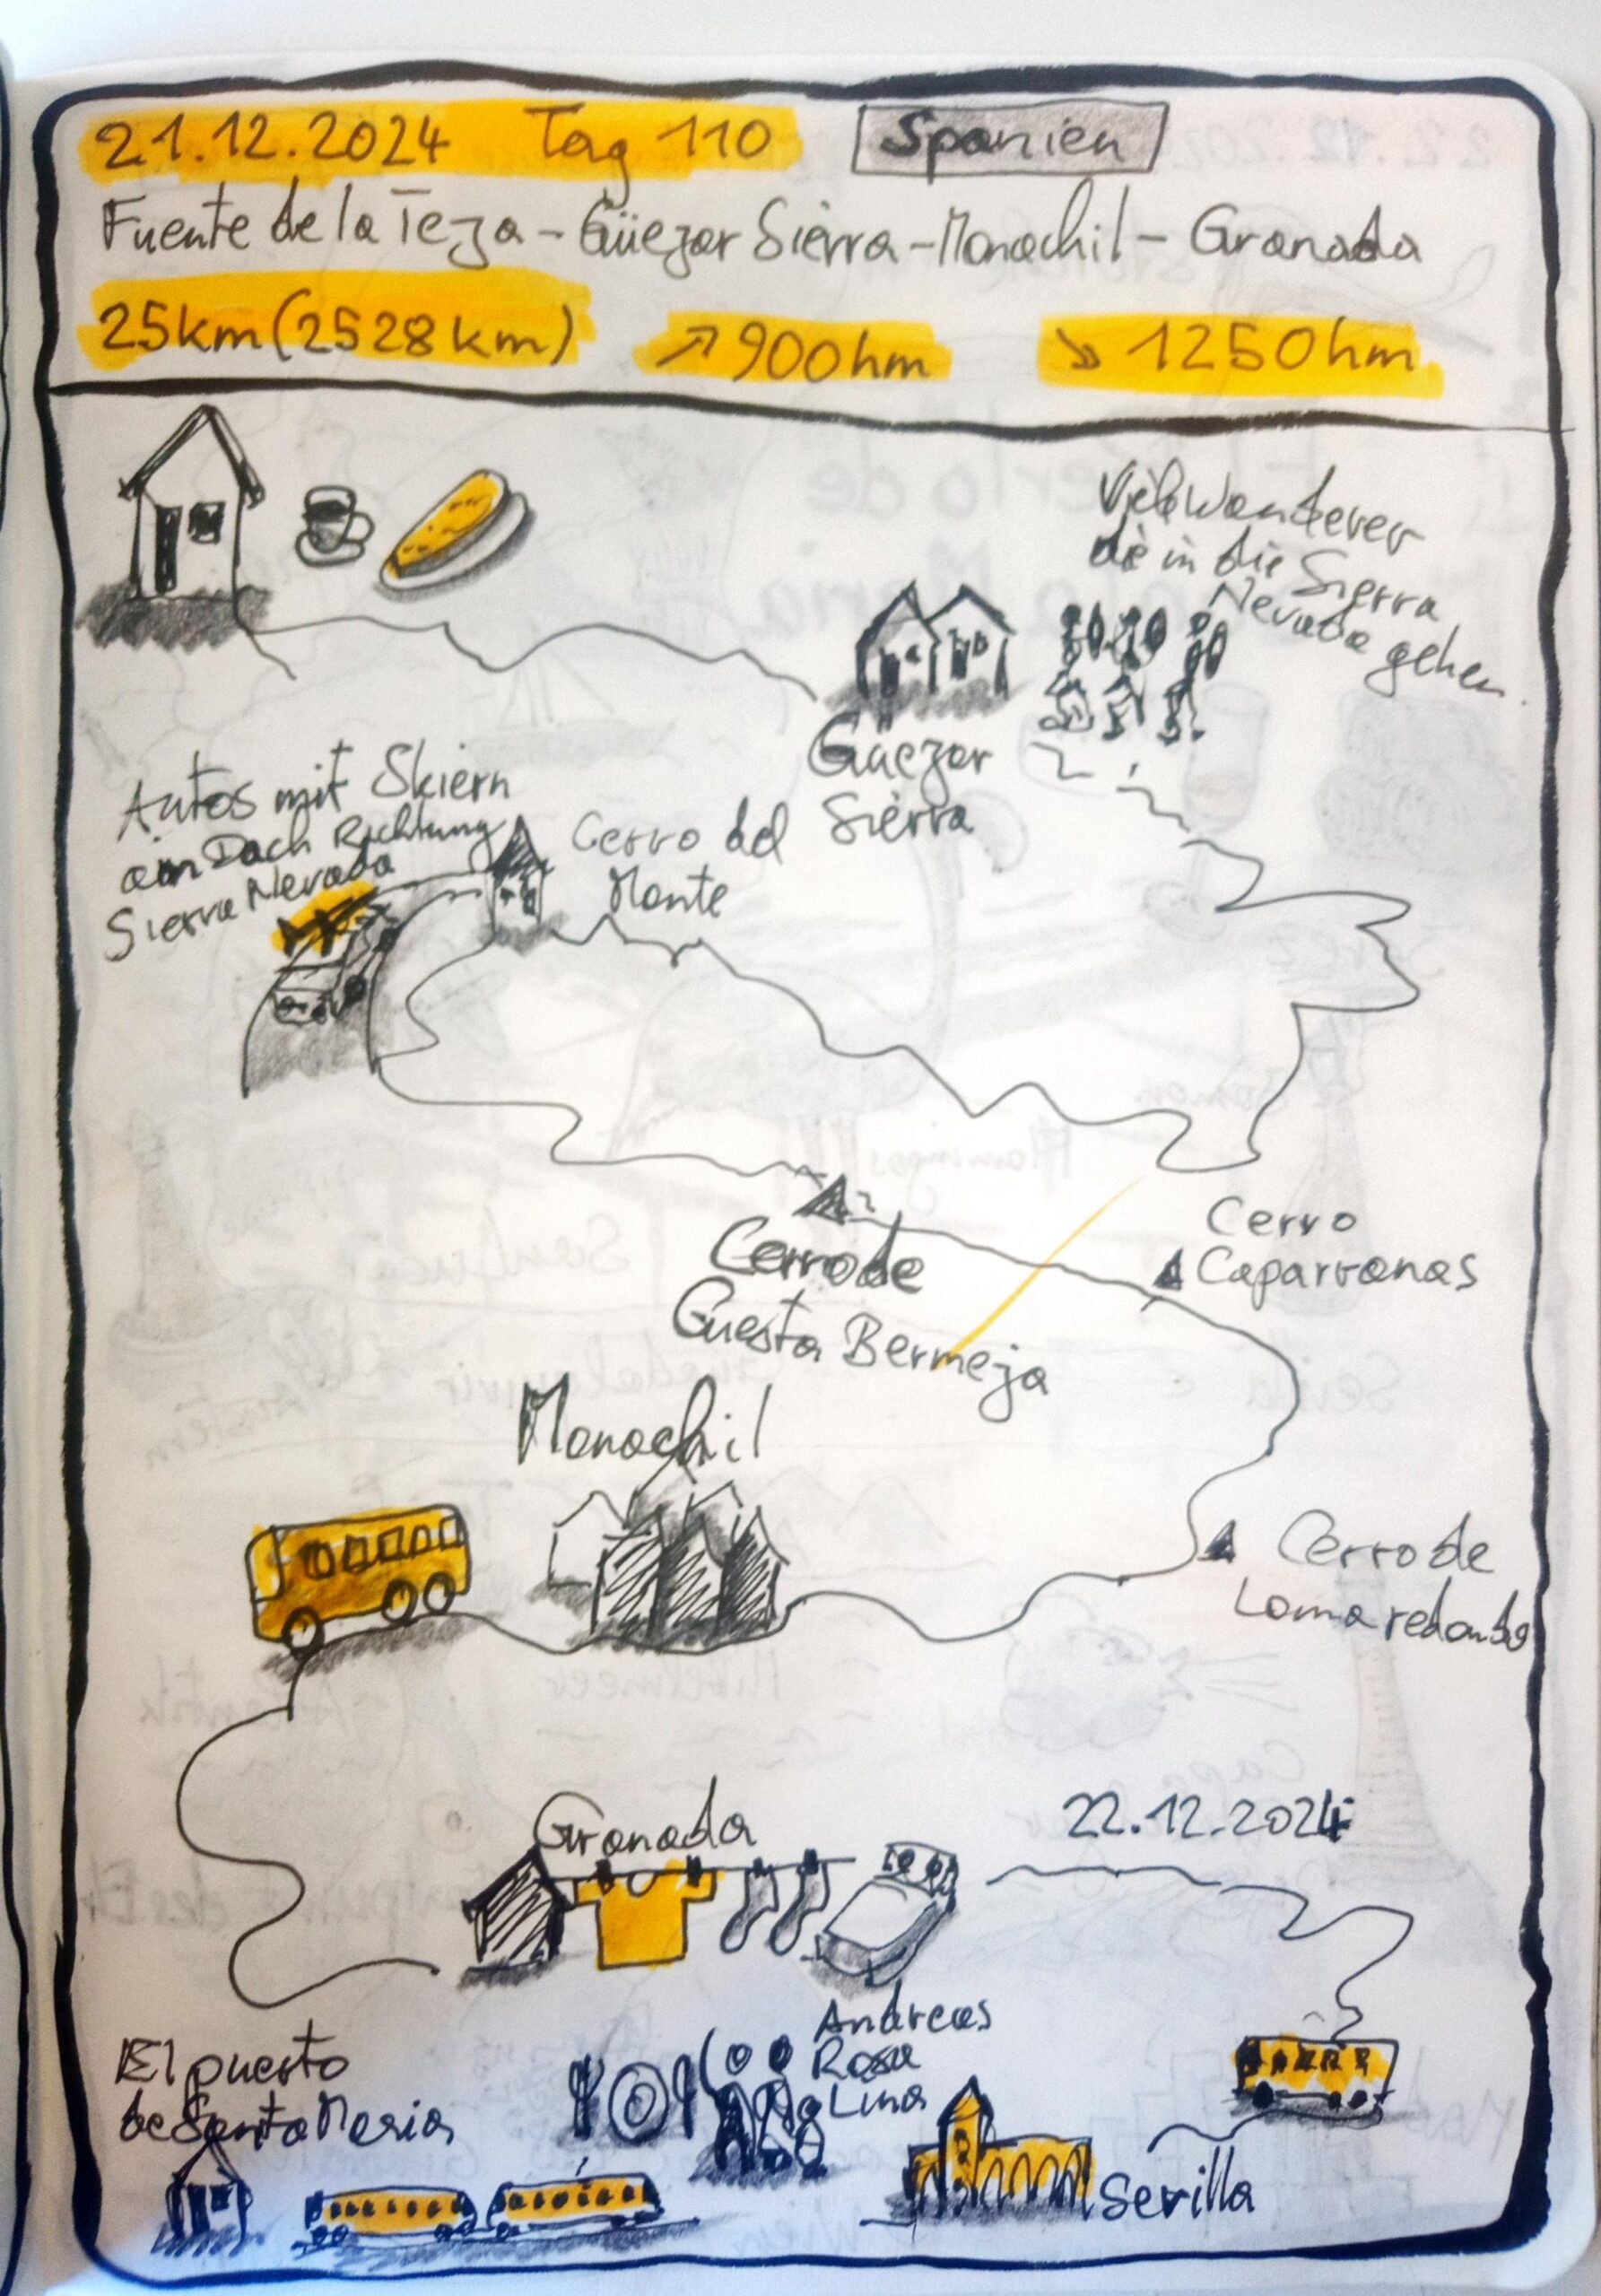 21.12.2024 Tag 110 Spanien
Fuente de la Teja - Güejar Sierra - Monachil - Granada
25km (2528km) ↗ 900hm ↘ 1250hm
Viele Wanderer
die in die Sierra
Nevada gehen
Güejar
Sierra
Autos mit Skiern
am Dach Richtung
Sierra Nevada
Cerro del
Monte
Cerro de
Cuesta Bermeja
Cerro
Caparranas
Monachil
Cerro de
Loma redonda
Granada
22.12.2024
Andreas
Rosa
Lina
El puerto
de Santa Maria
Sevilla